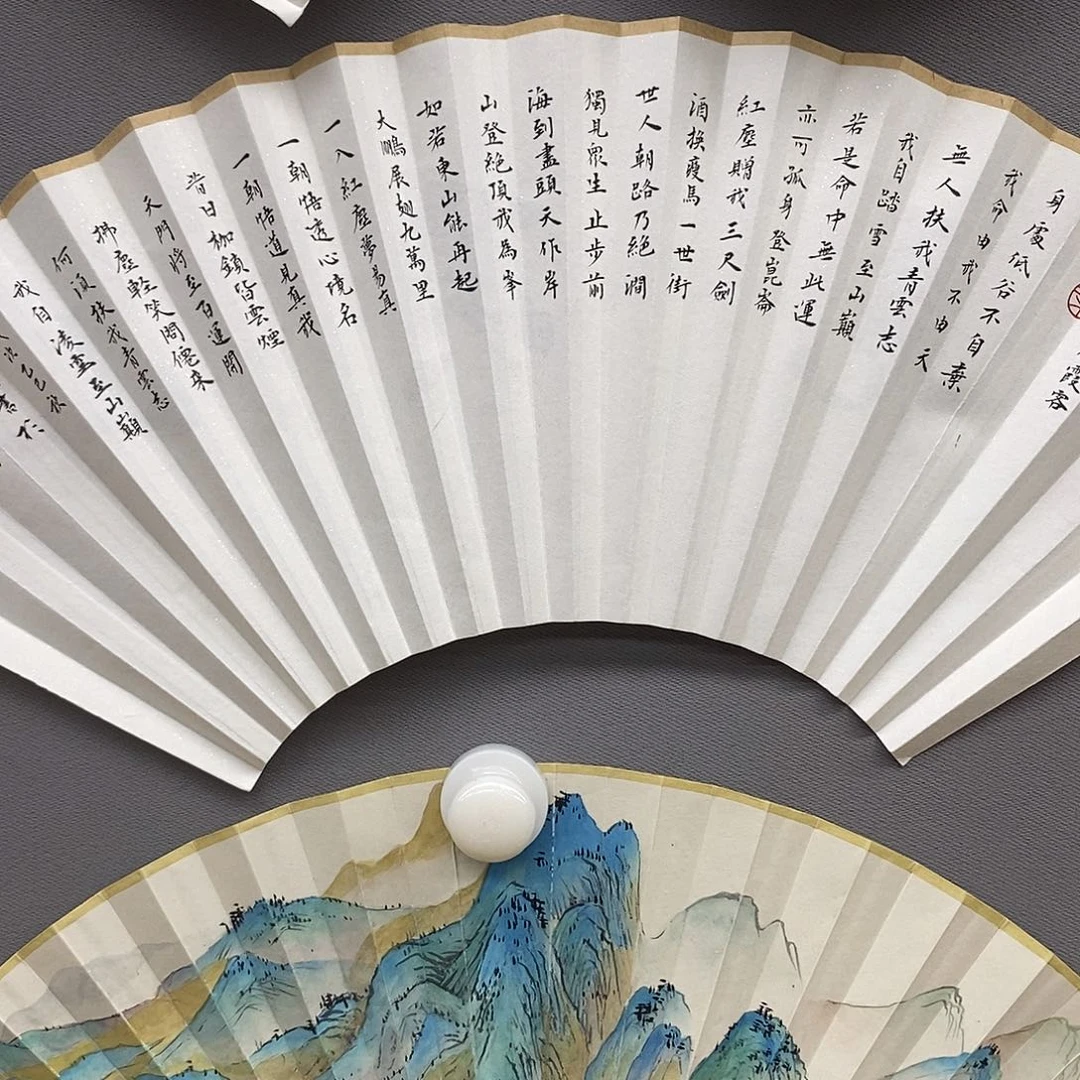 霞客
身處低谷不自棄
我命由我不由天
無人扶我青雲志
我自踏雪至山巔
若是命中無此運
亦可孤身登崑崙
紅塵贈我三尺劍
酒換瘦馬一世街
世人朝路乃絕澗
獨見眾生止步前
海到盡頭天作岸
山登絕頂我為峯
如若東山能再起
大鵬展翅九萬里
一入紅塵夢易真
一朝悟透心境名
一朝悟道見真我
昔日枷鎖皆雲煙
天門將至百運開
拂塵輕笑問僊來
何須扶我青雲志
我自凌雲至山巔
次乙巳秋
書於